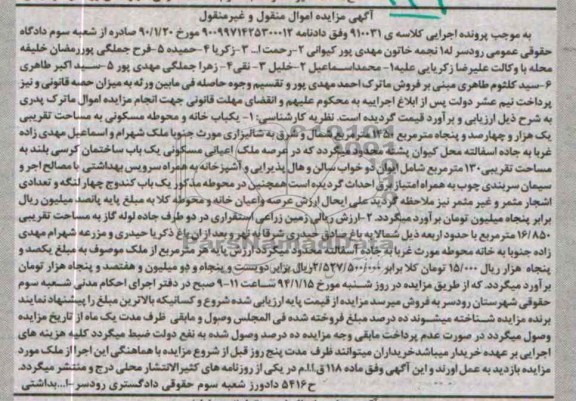 آگهی مزایده اموال منقول و غیرمنقول
به موجب پرونده اجرایی کلاسه ی ۹۱۰۰۳۱ وفق دادنامه ۹۰۰۹۹۷۱۴۲۵۳۰۰۰۱۲ مورخ ۹۰/۱/۲۰ صادره از شعبه سوم دادگاه
حقوقی عمومی رودسر له۱ نجمه خاتون مهدی پور کیوانی ۲-رحمت ا... ۳- زکریا ۴-حمیده ۵-فرح جملگی پوررمضان خلیفه
محله با وکالت علیرضا زکریایی علیه۱- محمداسماعیل ۲-خلیل ۳- نقی۴- زهرا جملگی مهدی پور ۵-سید اکبر طاهری
۶-سید کلثوم طاهری مبنی بر فروش ماترک احمد مهدی پور و تقسیم وجوه حاصله فی مابین ورثه به میزان حصه قانونی و نیز
پرداخت نیم عشر دولت پس از ابلاغ اجراییه به محکوم علیهم و انقضای مهلت قانونی جهت انجام مزایده اموال ماترک پدری
به شرح ذیل ارزیابی و برآورد قیمت گردیده است. نظریه کارشناسی: ۱- یکباب خانه و محوطه مسکونی به مساحت تقریبی
یک هزار و چهارصد و پنجاه مترمربع ۱۴۵۰ مترمربع شمالا و شرق به شالیزاری مورث جنوبا ملک شهرام و اسماعیل مهدی زاده
غربا به جاده اسفالته محل کیوان پشته محدود میگردد که در عرصه ملک اعیانی مسکونی یک باب ساختمان کرسی بلند به
مساحت تقریبی ۱۳۰ مترمربع شامل ایوان دو خواب سالن و هال پذیرایی و آشپزخانه به همراه سرویس بهداشتی با مصالح اجر و
سیمان سربندی چوب به همراه امتیاز برق احداث گردیده است همچنین در محوطه مذکور یک باب کندوج چهار لنگه و تعدادی
اشجار مثمر و غیر مثمر نیز ملاحظه گردید علی ایحال ارزش عرصه واعیان خانه و محوطه کلا به مبلغ پایه پانصد میلیون ریال
برابر پنجاه میلیون تومان برآورد میگردد. ۲-ارزش ریالی زمین زراعی استقراری در دو طرف جاده لوله گاز به مساحت تقریبی
۱۶/۸۵۰ مترمربع با حدود اربعه ذیل شمالا به باغ صادق حیدری شرقا به نهر و بعد از ان باغ ذکریا حیدری و مزرعه شهرام مهدی
زاده جنوبا به خانه محوطه مورث غربا به جاده اسفالته محدود میگردد ارزش پایه هر مترمربع از ملک موصوف به مبلغ یکصد و
پنجاه هزار ریال ۱۵/۰۰۰ تومان کلا برابر ۲/۵۲۷/۵۰۰/۰۰۰ ریال برابر دویست و پنجاه و دو میلیون و هفتصد و پنجاه هزار تومان
برآورد میگردد. که از طریق مزایده در روز شنبه مورخ ۹۴/۱/۱۵ ساعت ۱۱-۹ صبح در دفتر اجرای احکام مدنی شعبه سوم
حقوقی شهرستان رودسر به فروش میرسد مزایده از قیمت پایه ارزیابی شده شروع و کسانیکه بالاترین مبلغ را پیشنهاد نمایند
برنده مزایده شناخته میشوند ده درصد مبلغ فروخته شده فی المجلس وصول و مابقی ظرف مدت یک ماه از تاریخ مزایده
وصول میگردد در صورت عدم پرداخت مابقی وجه مزایده ده درصد وصول شده به نفع دولت ضبط میگردد کلیه هزینه های
اجرایی بر عهده خریدار میباشد خریداران میتوانند ظرف مدت پنج روز قبل از شروع مزایده با هماهنگی این اجرا از ملک مورد
مزایده بازدید به عمل اورند و این آگهی وفق ماده ۱۱۸ ق.ا.ا.م در یکی از روزنامه های کثیرالانتشار محلی درج و منتشر میگردد.
ح ۵۴۱۶ دادورز شعبه سوم حقوقی دادگستری رودسر-ا...بداشتی